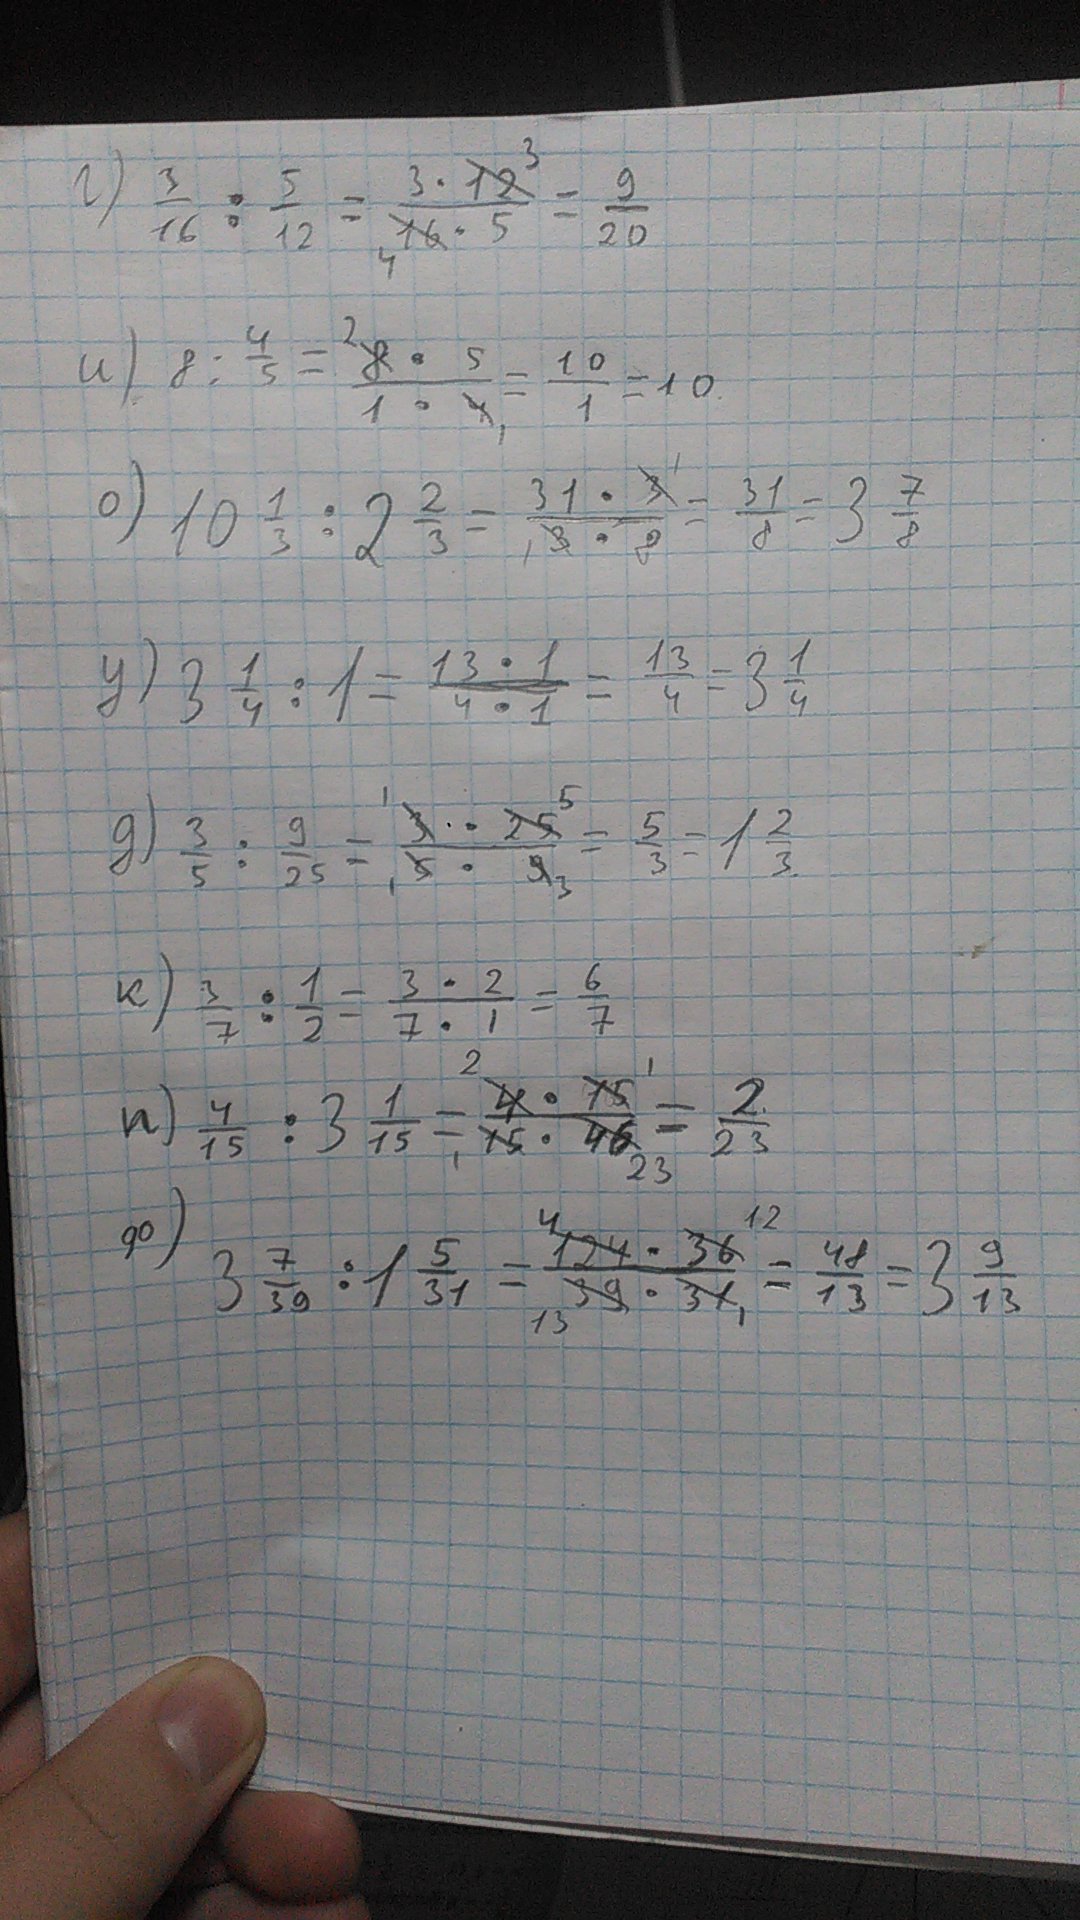 г) 3/16 : 5/12 = 3 · 12 3 / 4 16 · 5 = 9/20
и) 8 : 4/5 = 2 8 · 5 / 1 · 4 1 = 10/1 = 10.
о) 10 1/3 : 2 2/3 = 31 · 3 1 / 1 3 · 8 = 31/8 = 3 7/8
у) 3 1/4 : 1 = 13 · 1 / 4 · 1 = 13/4 = 3 1/4
д) 3/5 : 9/25 = 1 3 · 25 5 / 1 5 · 9 3 = 5/3 = 1 2/3.
к) 3/7 : 1/2 = 3 · 2 / 7 · 1 = 6/7
п) 4/15 : 3 1/15 = 2 4 · 15 1 / 1 15 · 46 23 = 2/23
ф) 3 7/39 : 1 5/31 = 4 124 · 36 12 / 13 39 · 31 1 = 48/13 = 3 9/13